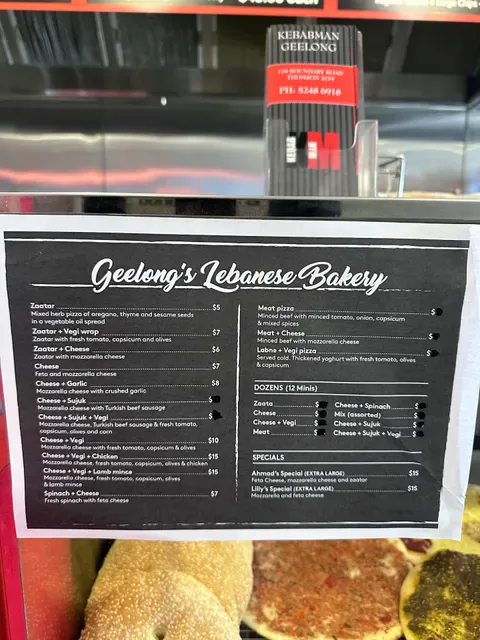 KEBABMAN
GEELONG
PH: 5248 0918
KEBAB
MAN
Geelong's Lebanese Bakery
Zaatar $5
Mixed herb pizza of oregano, thyme and sesame seeds
in a vegetable oil spread
Zaatar + Vegi wrap $7
Zaatar with fresh tomato, capsicum and olives
Zaatar + Cheese $6
Zaatar with mozzarella cheese
Cheese $7
Feta and mozzarella cheese
Cheese + Garlic $8
Mozzarella cheese with crushed garlic
Cheese + Sujuk $
Mozzarella cheese with Turkish beef sausage
Cheese + Sujuk + Vegi $
Mozzarella cheese, Turkish beef sausage & fresh tomato,
capsicum, olives and corn
Cheese + Vegi $10
Mozzarella cheese with fresh tomato, capsicum & olives
Cheese + Vegi + Chicken $15
Mozzarella cheese, fresh tomato, capsicum, olives & chicken
Cheese + Vegi + Lamb mince $15
Mozzarella cheese, fresh tomato, capsicum, olives
& lamb mince
Spinach + Cheese $7
Fresh spinach with feta cheese
Meat pizza $
Minced beef with minced tomato, onion, capsicum
& mixed spices
Meat + Cheese $
Minced beef with mozzarella cheese
Labne + Vegi pizza $
Served cold. Thickened yoghurt with fresh tomato, olives
& capsicum
DOZENS (12 Minis)
Zaata $
Cheese $
Cheese + Vegi $
Meat $
Cheese + Spinach $
Mix (assorted) $
Cheese + Sujuk $
Cheese + Sujuk + Vegi $
SPECIALS
Ahmad's Special (EXTRA LARGE) $15
Feta Cheese, mozzarella cheese and zaatar
Lilly's Special (EXTRA LARGE) $15
Mozzarella and feta cheese